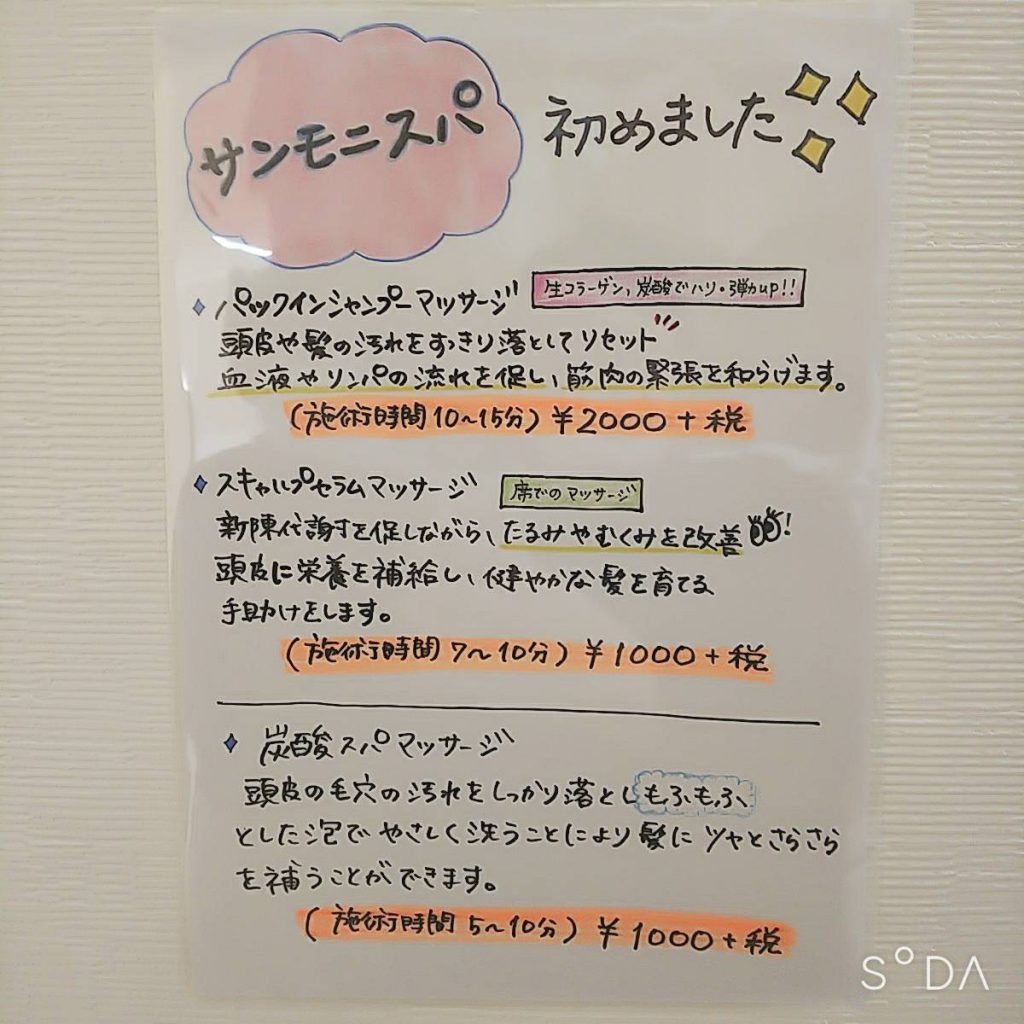 サンモニスパ 初めました
パックインシャンプーマッサージ 生コラーゲン、炭酸でハリ・弾力up!!
頭皮や髪の汚れをすっきり落としてリセット
血液やリンパの流れを促し、筋肉の緊張を和らげます。
(施術時間10~15分) ¥2000+税
スキャルプセラムマッサージ 席でのマッサージ
新陳代謝を促しながら、たるみやむくみを改善!
頭皮に栄養を補給し、健やかな髪を育てる
手助けをします。
(施術時間7~10分) ¥1000+税
炭酸スパマッサージ
頭皮の毛穴の汚れをしっかり落としもふもふ
とした泡でやさしく洗うことにより髪にツヤとさらさら
を補うことができます。
(施術時間5~10分) ¥1000+税
S°DA